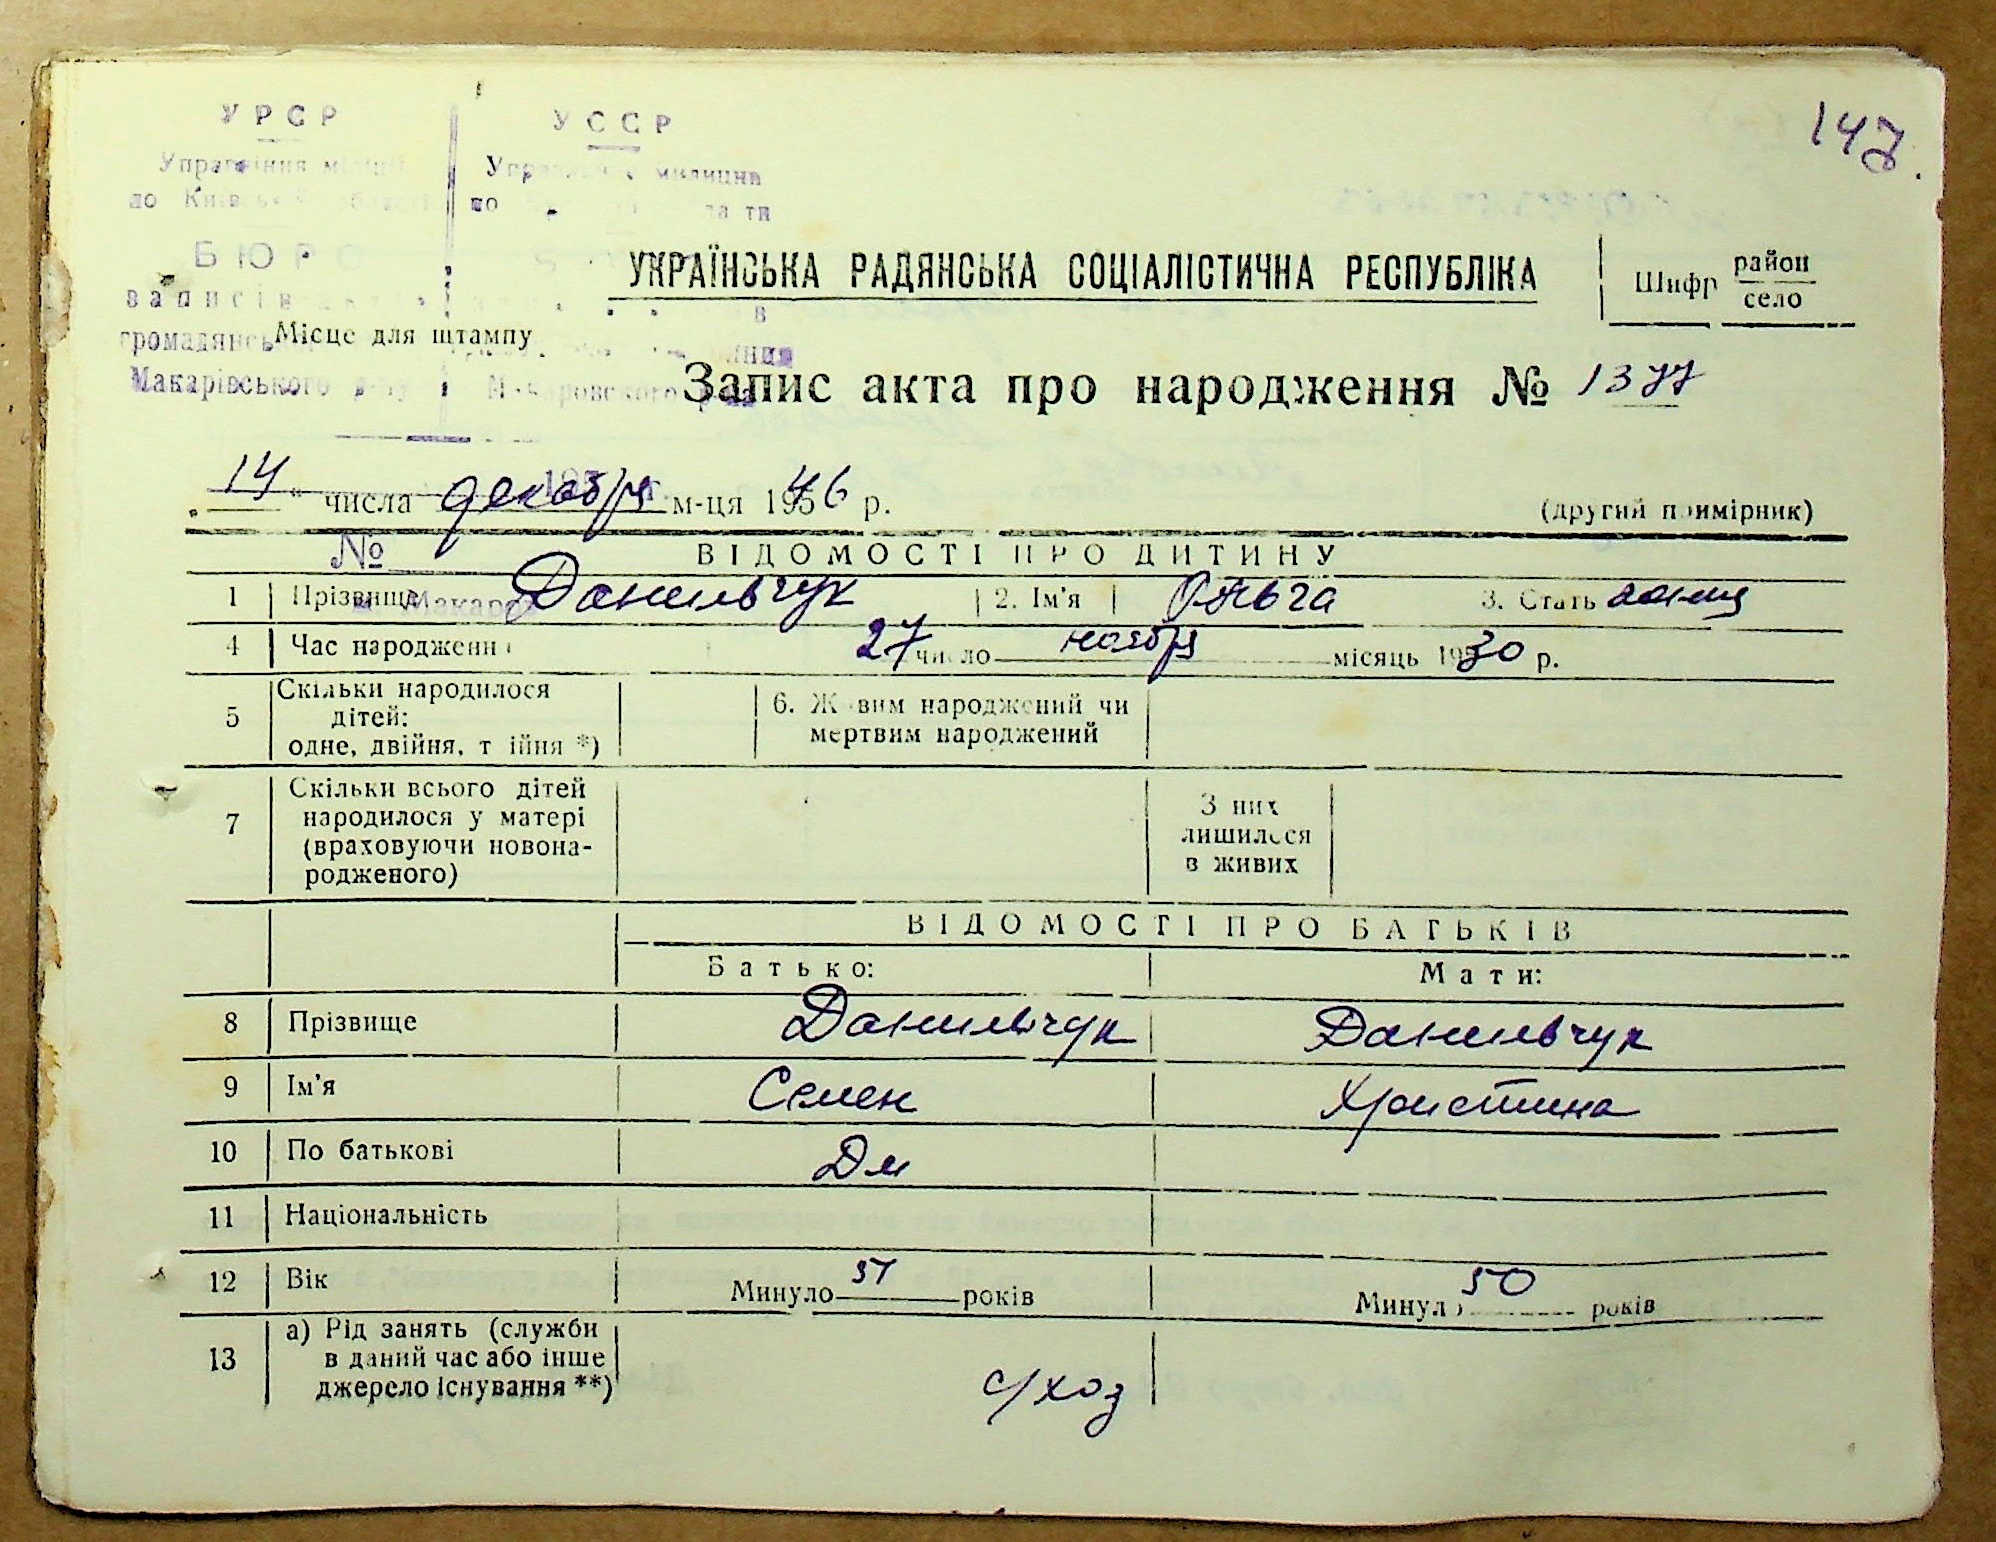 147.
УРСР УССР
Управління міліції
по Київській області по
БЮРО
записів актів в
громадянськ
Макарівського р-ну Макаровского р-на
Місце для штампу
УКРАЇНСЬКА РАДЯНСЬКА СОЦІАЛІСТИЧНА РЕСПУБЛІКА
Шифр район
село
Запис акта про народження № 1377
„14“ числа декабря м-ця 1946 р.
(другий примірник)
№
ВІДОМОСТІ ПРО ДИТИНУ
1 Прізвище Данильчук 2. Ім'я Ольга 3. Стать
4 Час народження 27 число ноября місяць 1930 р.
5 Скільки народилося дітей: одне, двійня, трійня *) 6. Живим народжений чи мертвим народжений
7 Скільки всього дітей народилося у матері (враховуючи новонародженого) З них лишилося в живих
ВІДОМОСТІ ПРО БАТЬКІВ
Батько: Мати:
8 Прізвище Данильчук Данильчук
9 Ім'я Семен Христина
10 По батькові Дм
11 Національність
12 Вік Минуло 51 років Минуло 50 років
13 а) Рід занять (служби в даний час або інше джерело існування **) с/хоз